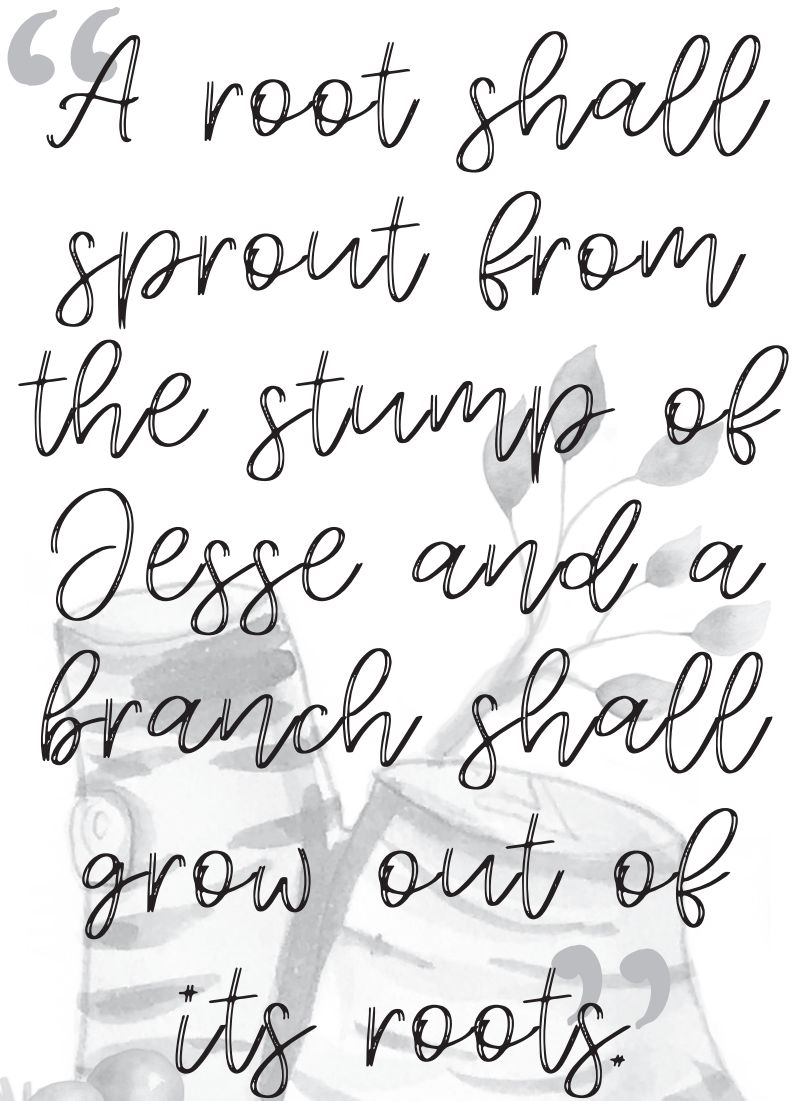 “A root shall
sprout from
the stump of
Jesse and a
branch shall
grow out of
its roots.”